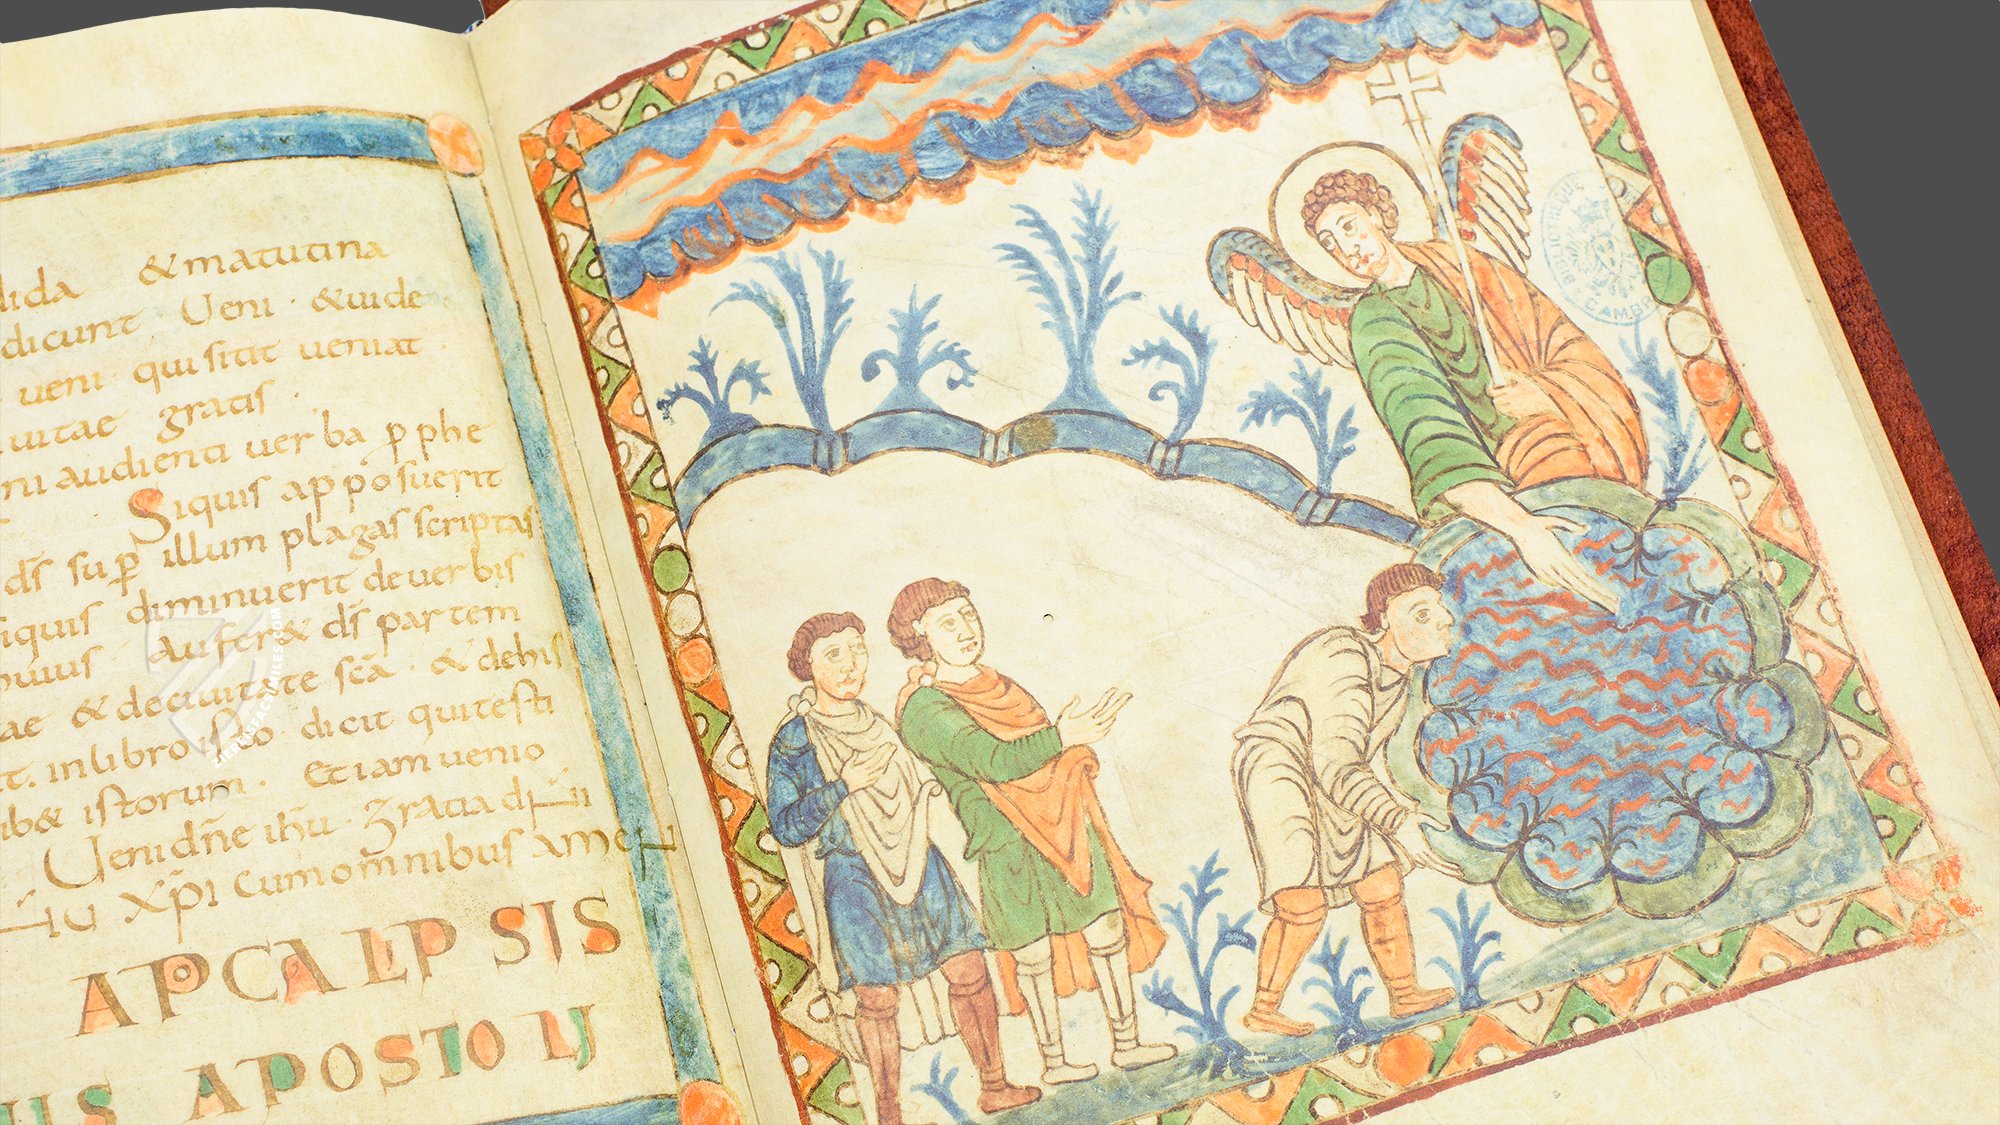 lida & matutina
dicunt Ueni · & uide
ueni · qui sitit ueniat ·
uitae gratis ·
ni audienti uerba p phe
Siquis apposuerit
ds sup illum plagas scriptas
siquis diminuerit de uerbis
huius auferet ds partem
ae & deciuitate sca · & dehis
t. in libro isto · dicit qui testi
ib& istorum · Etiam uenio
Ueni dne ihu · Gratia dni
xpi cum omnibus amen
APCALPSIS
APOSTOLI
BIBLIOTHEQUE
CAMBR